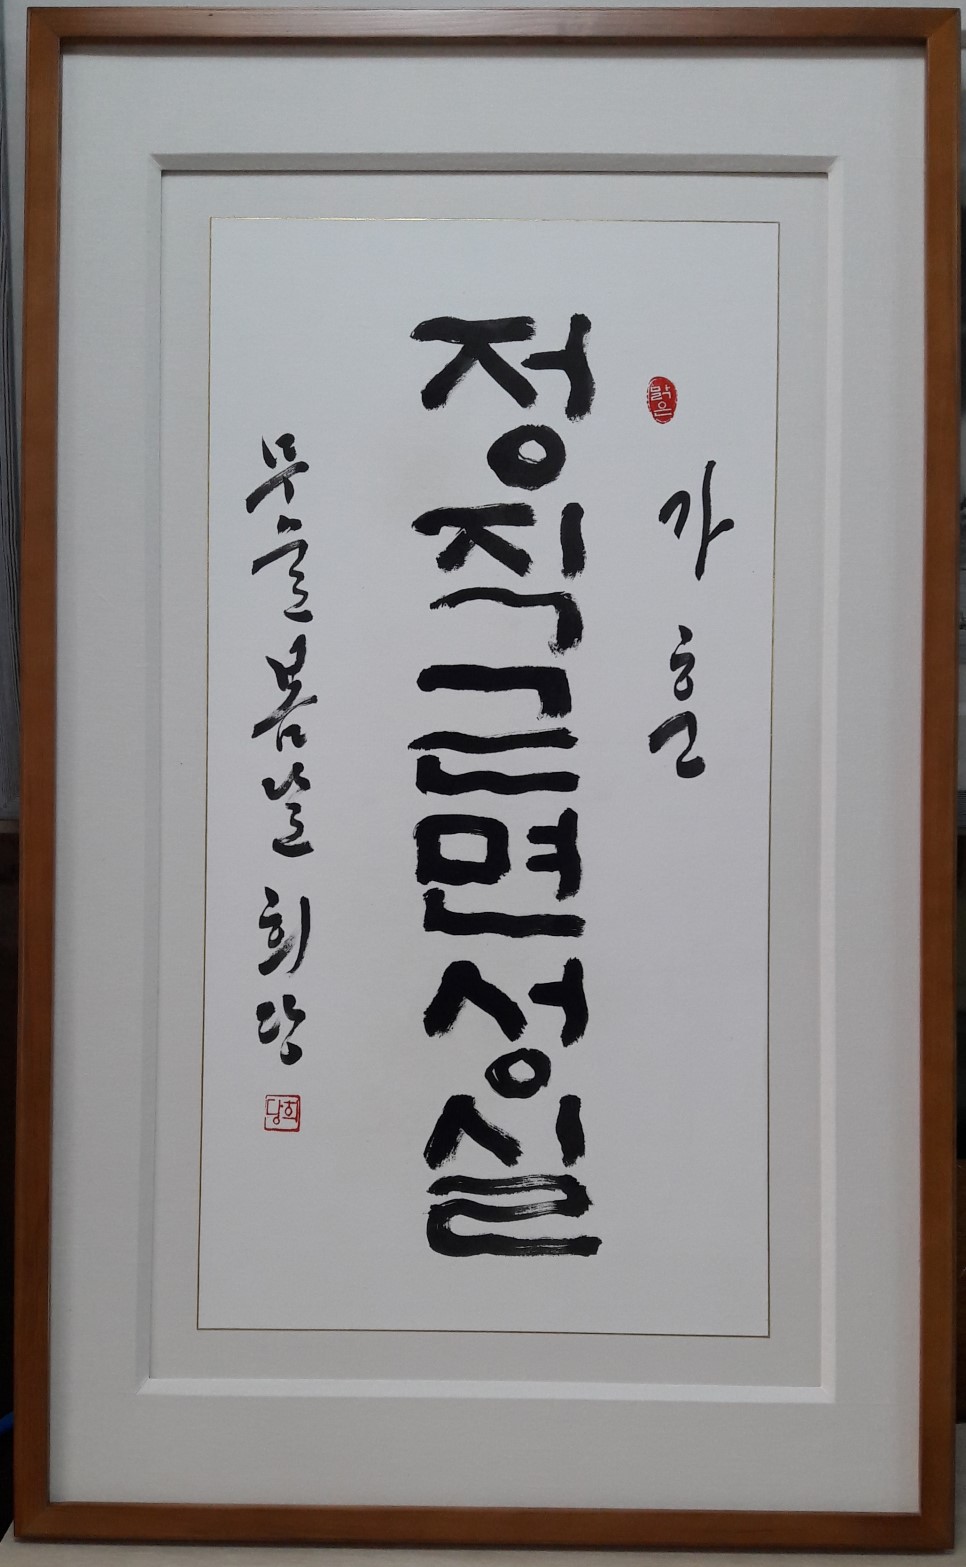 맑은
가훈
정직근면성실
무술봄날 희당
희당